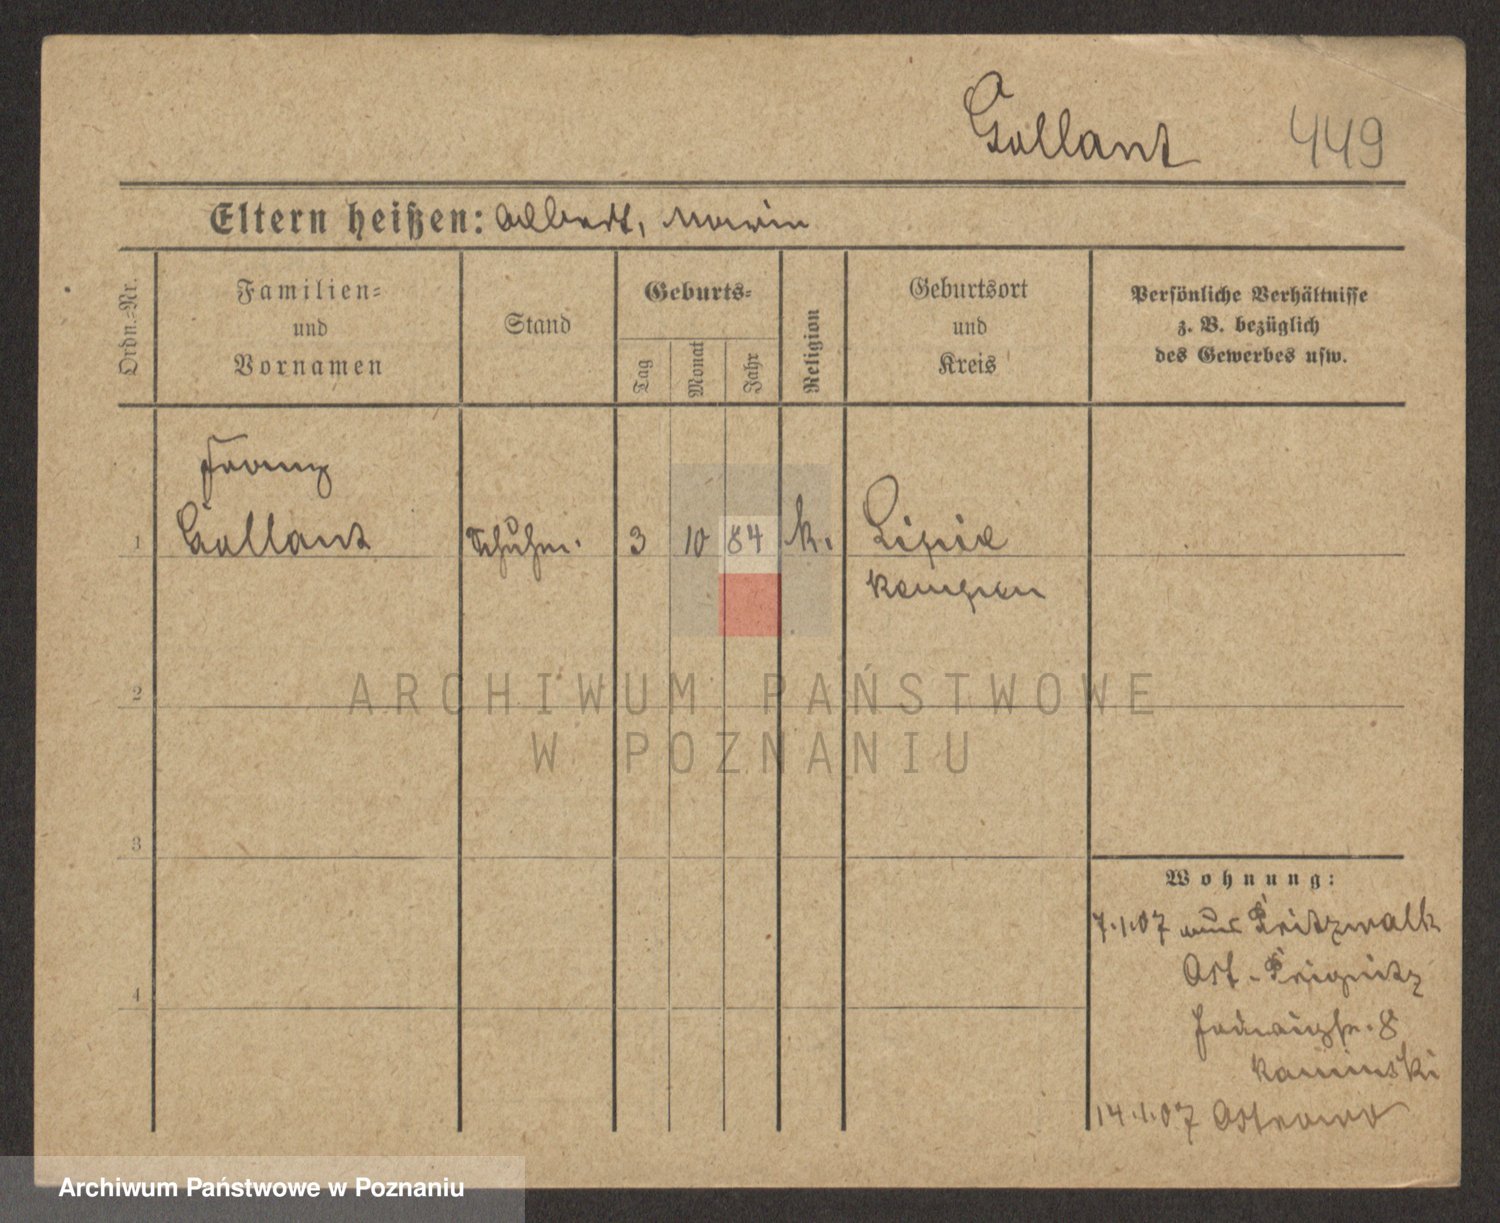 Gallant 449
Eltern heißen: Albert, Marie
Ordn.=Nr.
Familien=
und
Vornamen
Stand
Geburts=
Tag
Monat
Jahr
Religion
Geburtsort
und
Kreis
Persönliche Verhältnisse
z. B. bezüglich
des Gewerbes usw.
Franz
1 Gallant Schuhm. 3 10 84 k.
Kempen
2
ARCHIWUM PAŃSTWOWE
W POZNANIU
3
Wohnung:
7.1.07 aus Pritzwalk
Ost-Prignitz
4
8
Kaminski
14.1.07 Ostrowo
Archiwum Państwowe w Poznaniu